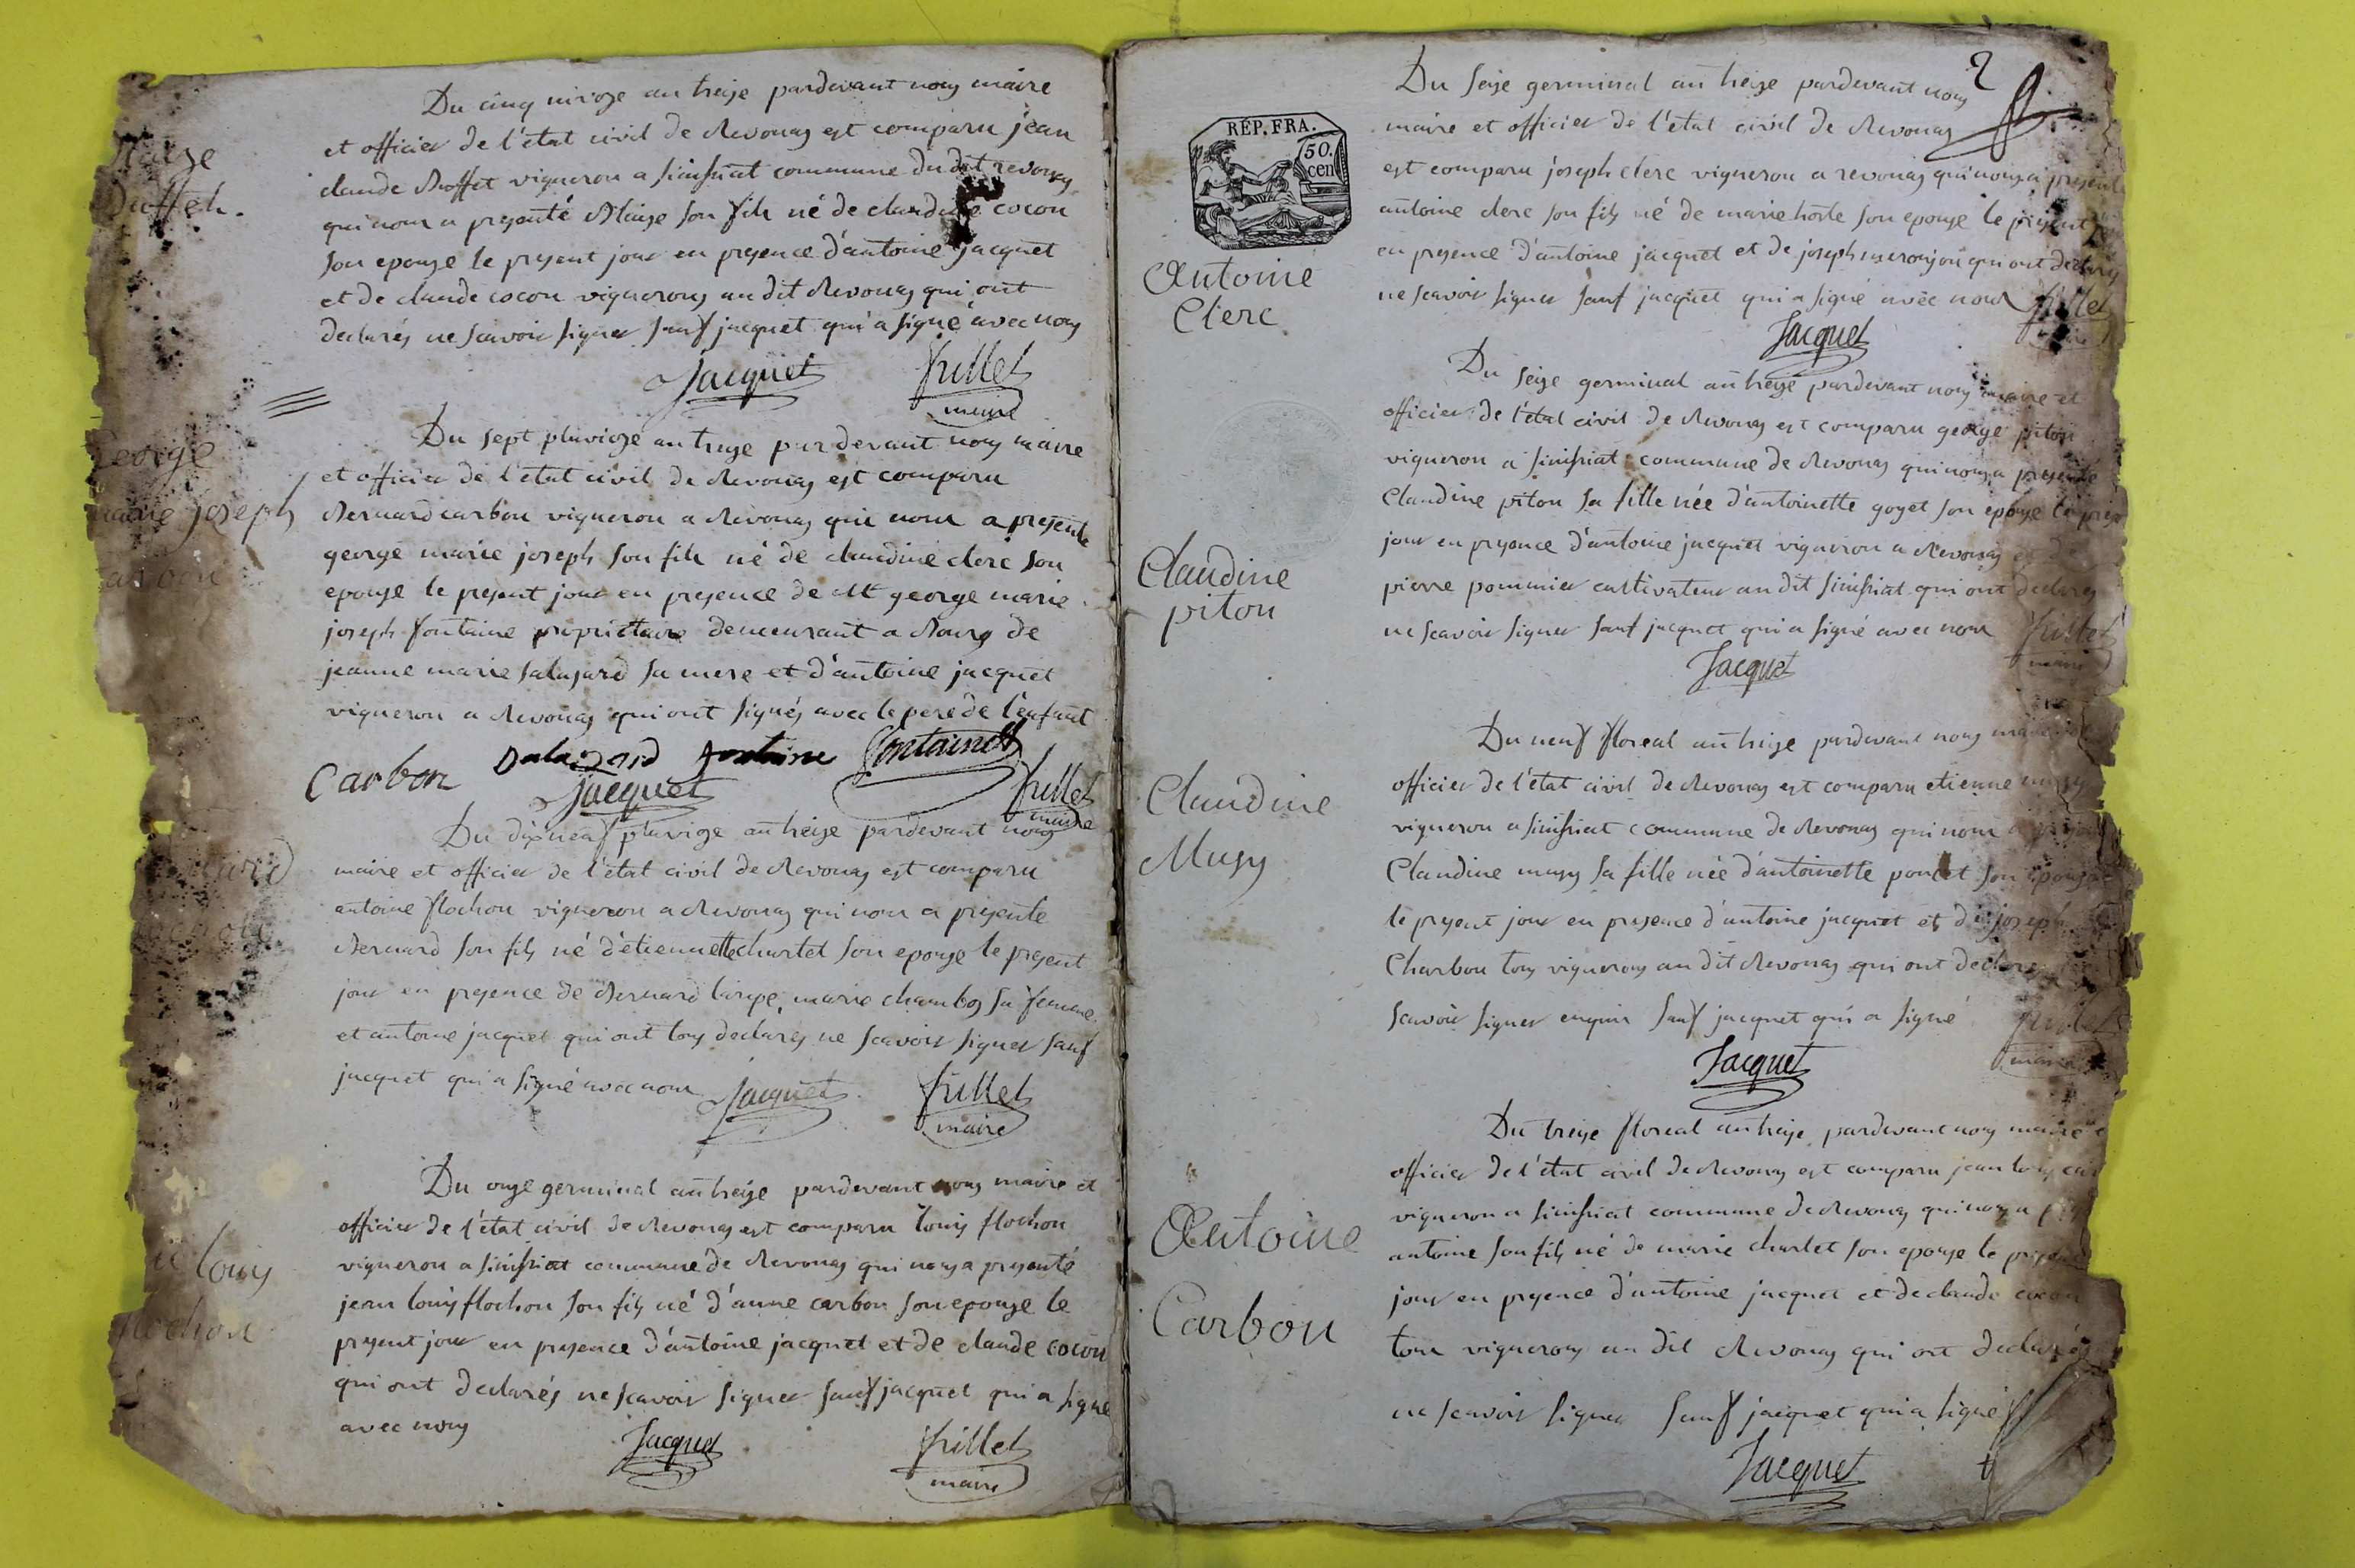 Du cinq nivoze an treize pardevant nous maire
et officier de l'etat civil de Revonas est comparu jean
claude Buffet vigneron a Simsiat commune du dit revonas
qui nous a presenté Blaize son fils né de claudine cocon
son epouze le present jour en presence d'antoine jacquet
et de claude cocon vignerons au dit Revonas qui ont
declarés ne scavoir signer sauf jacquet qui a signé avec nous
Jacquet fillet
maire
Du sept pluvioze an treize pardevant nous maire
et officier de l'etat civil de Revonas est comparu
Bernard carbon vigneron a Revonas qui nous a presenté
george marie joseph son fils né de claudine clerc son
epouze le present jour en presence de Mr george marie
joseph fontaine propriettaire demeurant a Bourg de
jeanne marie salazard sa mere et d'antoine jacquet
vigneron a Revonas qui ont signés avec le pere de l'enfant
Carbon Dalazard fontaine fontaine
jacquet fillet
maire
Du dixneuf pluvioze an treize pardevant nous
maire et officier de l'état civil de Revonas est comparu
antoine flochon vigneron a Revonas qui nous a presenté
Bernard son fils né d'etiennette chartet son epouze le present
jour en presence de Bernard marie chambos sa femme
et antoine jacquet qui ont tous declarés ne scavoir signer sauf
jacquet qui a signé avec nous Jacquet fillet
maire
Du onze germinal an treize pardevant nous maire et
officier de l'état civil de Revonas est comparu louis flochon
vigneron a Simsiat commune de Revonas qui nous a presenté
jean louis flochon son fils né d'anne carbon son epouze le
present jour en presence d'antoine jacquet et de claude cocon
qui ont declarés ne scavoir signer sauf jacquet qui a signé
avec nous
Jacquet fillet
maire
Buffet.
George
marie joseph
louis
flochon
2
RÉP. FRA.
50.
cen
Du seize germinal an treize pardevant nous
maire et officier de l'etat civil de Revonas
est comparu joseph clerc vigneron a revonas qui nous a presenté
antoine clerc son fils né de marie son epouze le present
en presence d'antoine jacquet et de joseph qui ont declarés
ne scavoir signer sauf jacquet qui a signé avec nous fillet
Jacquet maire
Antoine
Clerc
Du seize germinal an treize pardevant nous maire et
officier de l'état civil de Revonas est comparu george piton
vigneron a Simsiat commune de Revonas qui nous a presenté
Claudine piton sa fille née d'antoinette goyet son epouze le
jour en presence d'antoine jacquet vigneron a Revonas et de
pierre pommier cultivateur au dit Simsiat qui ont declarés
ne scavoir signer sauf jacquet qui a signé avec nous fillet
Jacquet maire
Claudine
piton
Du neuf floreal an treize pardevant nous maire
officier de l'état civil de Revonas est comparu etienne musy
vigneron a Simsiat commune de Revonas qui nous a
Claudine musy sa fille née d'antoinette poncet son epouze
le present jour en presence d'antoine jacquet et de joseph
Charbon tous vignerons au dit Revonas qui ont declarés
scavoir signer enquis sauf jacquet qui a signé fillet
Jacquet maire
Claudine
Musy
Du treize floreal an treize pardevant nous maire
officier de l'état civil de Revonas est comparu jean louis
vigneron a Simsiat commune de Revonas qui nous a
antoine son fils né de marie chartet son epouze le present
jour en presence d'antoine jacquet et de claude cocon
tous vignerons au dit Revonas qui ont declarés
ne scavoir signer sauf jacquet qui a signé
Jacquet
Antoine
Carbon